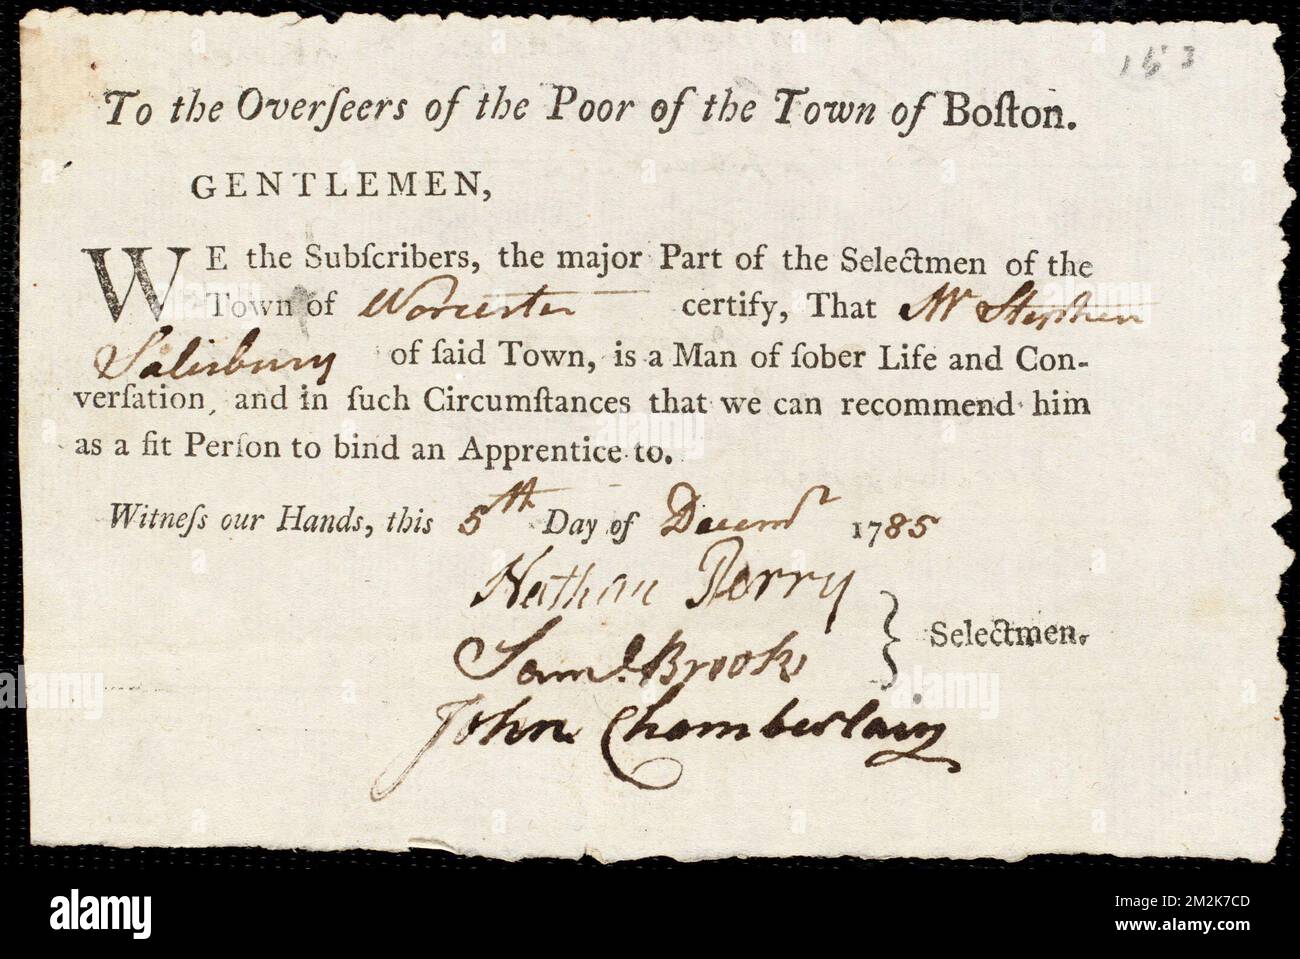 153
To the Overſeers of the Poor of the Town of Boſton.
GENTLEMEN,
WE the Subſcribers, the major Part of the Selectmen of the
Town of Worcester certify, That Mr Stephen
Salisbury of ſaid Town, is a Man of ſober Life and Con-
verſation, and in ſuch Circumſtances that we can recommend him
as a fit Perſon to bind an Apprentice to.
Witneſs our Hands, this 5th Day of Decemr 1785
Nathan Perry
Saml. Brooks
John Chamberlain
Selectmen.
alamy
Image ID: 2M2K7CD
www.alamy.com